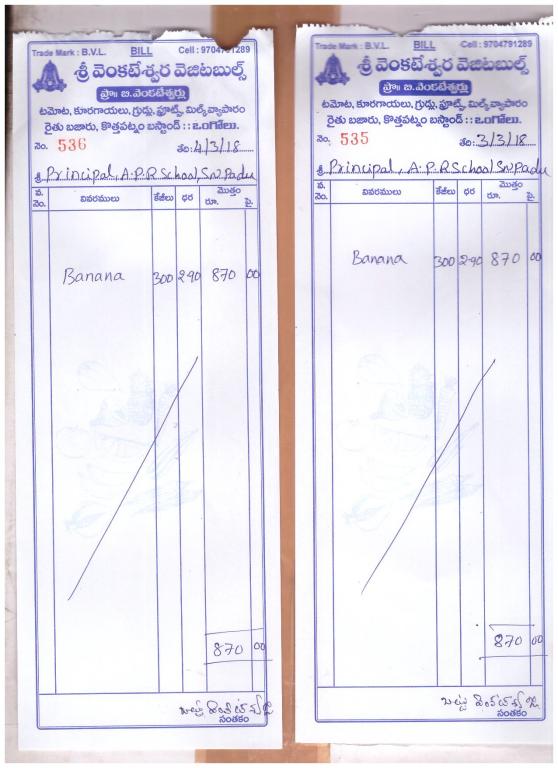 Trade Mark : B.V.L. BILL Cell : 9704791289
శ్రీ వెంకటేశ్వర వెజిటబుల్స్
ప్రొ॥ బి.వెంకటేశ్వర్లు
టమోట, కూరగాయలు, గ్రుడ్లు, ఫ్రూట్స్, మిల్క్ వ్యాపారం
రైతు బజారు, కొత్తపట్నం బస్టాండ్ :: ఒంగోలు.
నెం. 536 తేది: 4/3/18
శ్రీ Principal, A.P.R School, S.N. Padu
వ. నెం. వివరములు కేజీలు ధర మొత్తం రూ. పై.
Banana 300 290 870 00
870 00
సంతకం
Trade Mark : B.V.L. BILL Cell : 9704791289
శ్రీ వెంకటేశ్వర వెజిటబుల్స్
ప్రొ॥ బి.వెంకటేశ్వర్లు
టమోట, కూరగాయలు, గ్రుడ్లు, ఫ్రూట్స్, మిల్క్ వ్యాపారం
రైతు బజారు, కొత్తపట్నం బస్టాండ్ :: ఒంగోలు.
నెం. 535 తేది: 3/3/18
శ్రీ Principal, A.P.R School S.N. Padu
వ. నెం. వివరములు కేజీలు ధర మొత్తం రూ. పై.
Banana 300 290 870 00
870 00
సంతకం